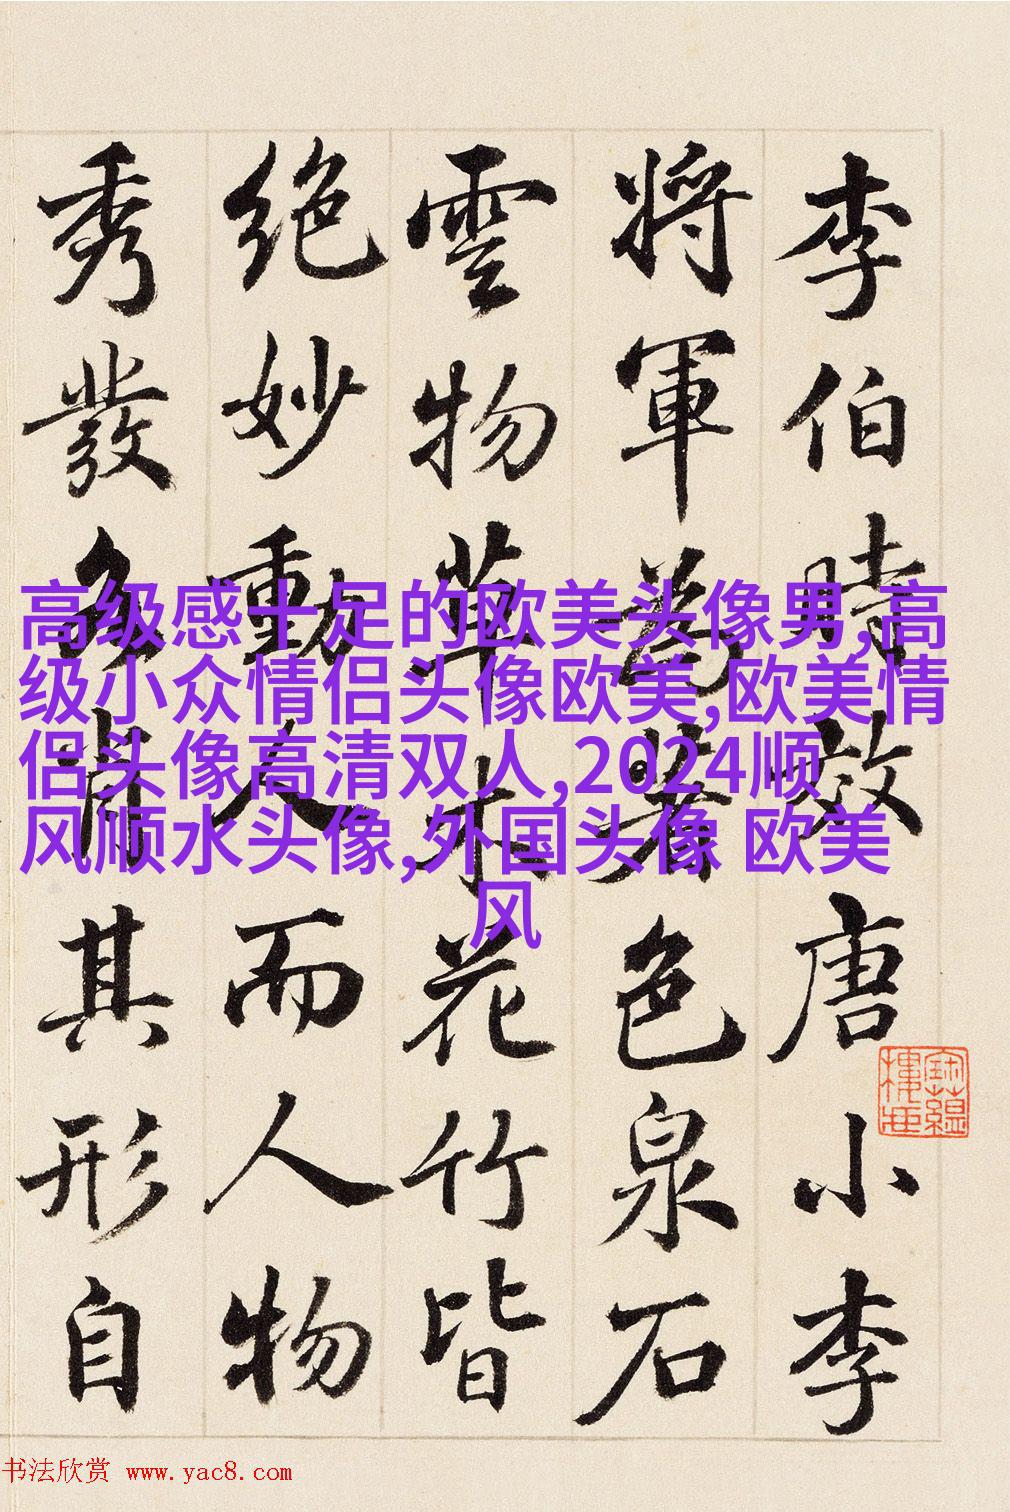 李伯時效唐小李
將軍為著色泉石
雲物草木花竹皆
絕妙動人而人物
秀發各肖其形自
高级感十足的欧美头像男,高
级小众情侣头像欧美,欧美情
侣头像高清双人,2024顺
风顺水头像,外国头像 欧美
风
书法欣赏 www.yac8.com